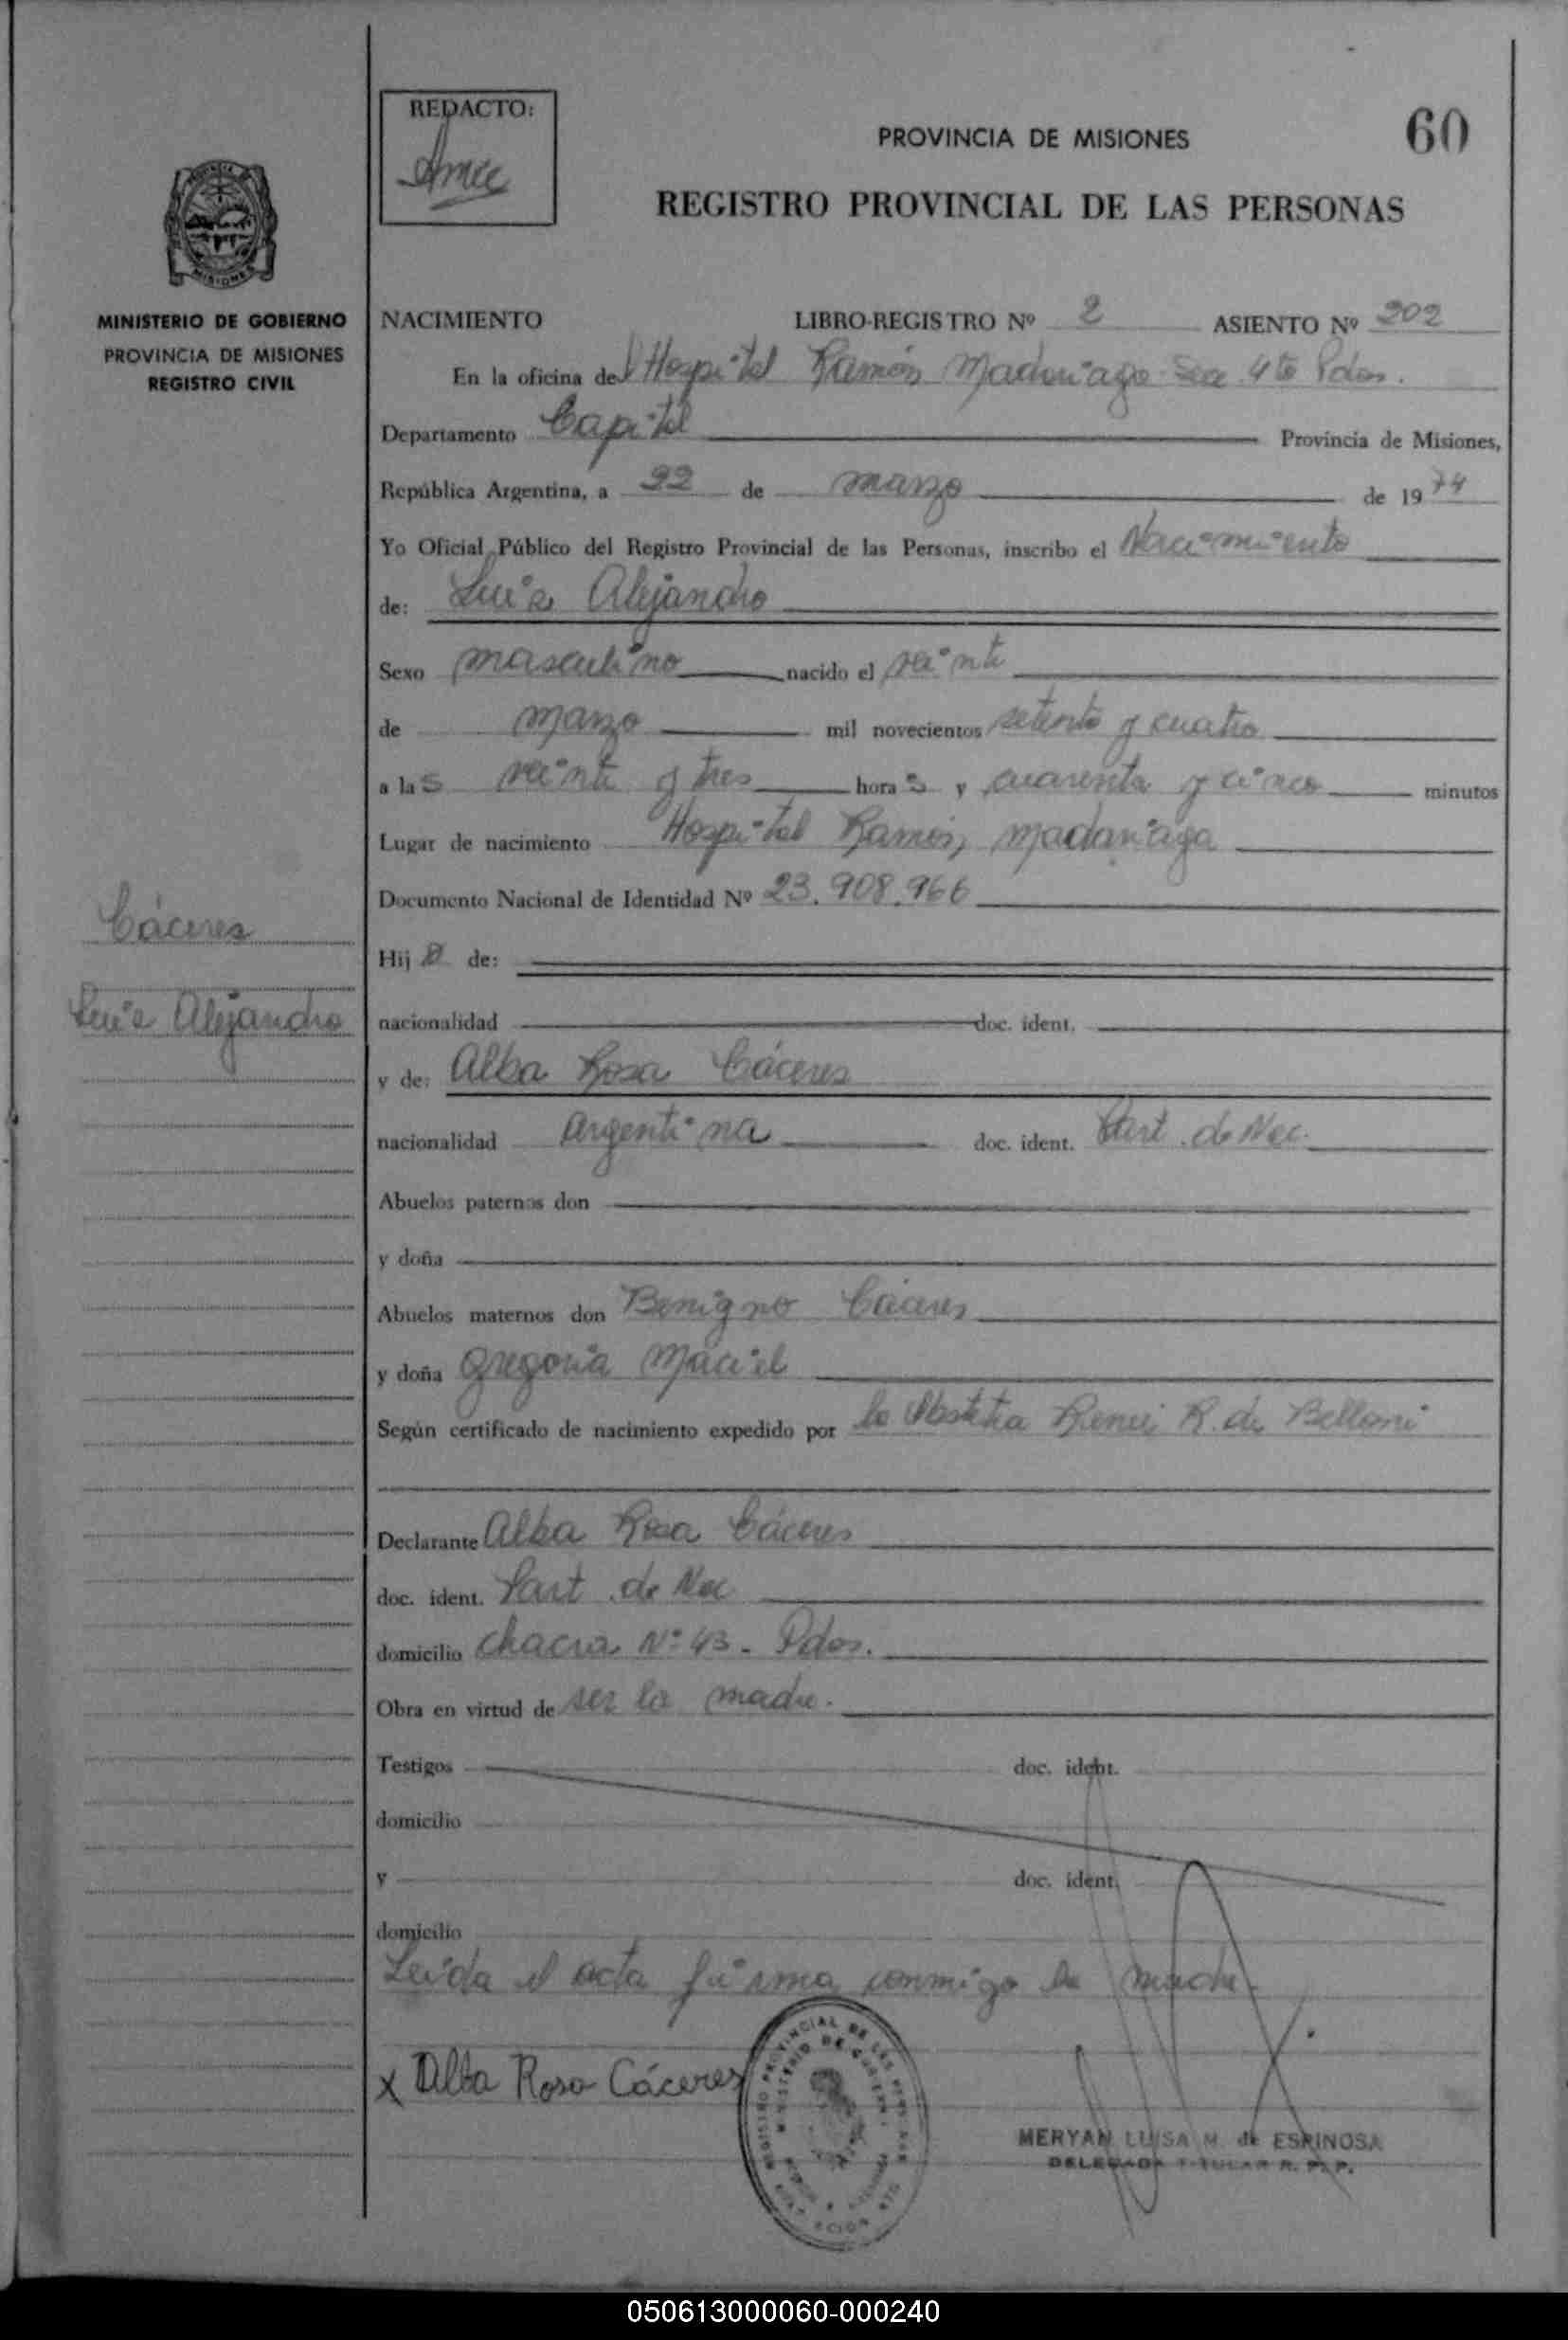 REDACTO:
60
PROVINCIA DE MISIONES
REGISTRO PROVINCIAL DE LAS PERSONAS
MISIONES
MINISTERIO DE GOBIERNO
PROVINCIA DE MISIONES
REGISTRO CIVIL
NACIMIENTO LIBRO-REGISTRO Nº 2 ASIENTO Nº 202
En la oficina del Hospital Ramón Madariaga Sec 4ta Pdas.
Departamento Capital Provincia de Misiones,
República Argentina, a 22 de marzo de 1974
Yo Oficial Público del Registro Provincial de las Personas, inscribo el Nacimiento
de: Luis Alejandro
Sexo masculino nacido el veinte
de marzo mil novecientos setenta y cuatro
a las veinte y tres horas y cuarenta y cinco minutos
Lugar de nacimiento Hospital Ramón Madariaga
Documento Nacional de Identidad Nº 23.908.966
Cáceres
Hijo de:
Luis Alejandro
nacionalidad doc. ident.
y de: Alba Rosa Cáceres
nacionalidad argentina doc. ident. Part. de Nac.
Abuelos paternos don
y doña
Abuelos maternos don Benigno Cáceres
y doña Gregoria Maciel
Según certificado de nacimiento expedido por la Obstetra R. de Belloni
Declarante Alba Rosa Cáceres
doc. ident. Part. de Nac
domicilio chacra Nº 43 - Pdas.
Obra en virtud de ser la madre.
Testigos doc. ident.
domicilio
y doc. ident.
domicilio
Leída el acta firma conmigo la madre
x Alba Rosa Cáceres
MERYAN LUISA M. de ESPINOSA
DELEGADA TITULAR R. P. P.
050613000060-000240